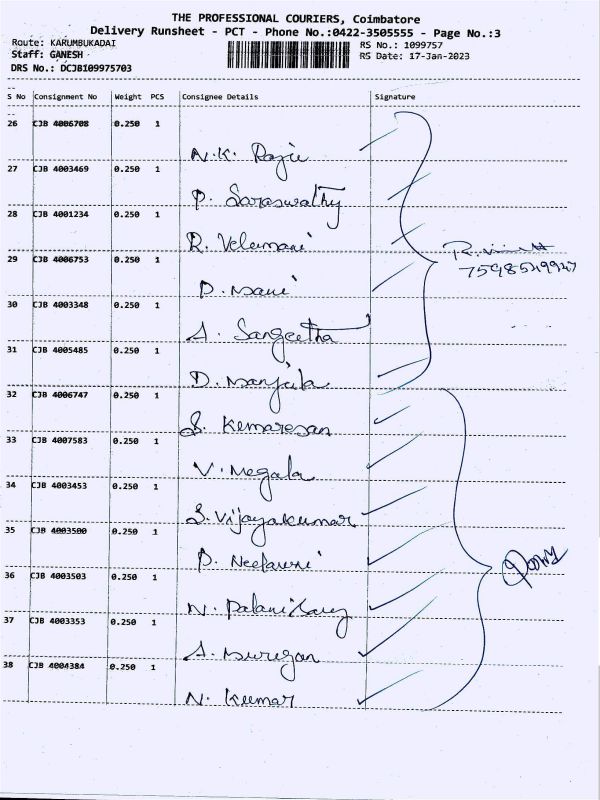 THE PROFESSIONAL COURIERS, Coimbatore
Delivery Runsheet - PCT - Phone No.:0422-3505555 - Page No.:3
Route: KARUMBUKADAI
RS No.: 1099757
Staff: GANESH
RS Date: 17-Jan-2023
DRS No.: DCJB109975703
S No Consignment No Weight PCS Consignee Details Signature
26 CJB 4006708 0.250 1
N.K. Raju
27 CJB 4003469 0.250 1
P. Saraswathy
28 CJB 4001234 0.250 1
R. Velumani
29 CJB 4006753 0.250 1
D. Mani
30 CJB 4003348 0.250 1
A. Sangeetha
31 CJB 4005485 0.250 1
D. Manjula
32 CJB 4006747 0.250 1
S. Kumaresan
33 CJB 4007583 0.250 1
V. Megala
34 CJB 4003453 0.250 1
S. Vijayakumar
35 CJB 4003500 0.250 1
P.
36 CJB 4003503 0.250 1
N.
37 CJB 4003353 0.250 1
A. Murugan
38 CJB 4004384 0.250 1
N. Kumar